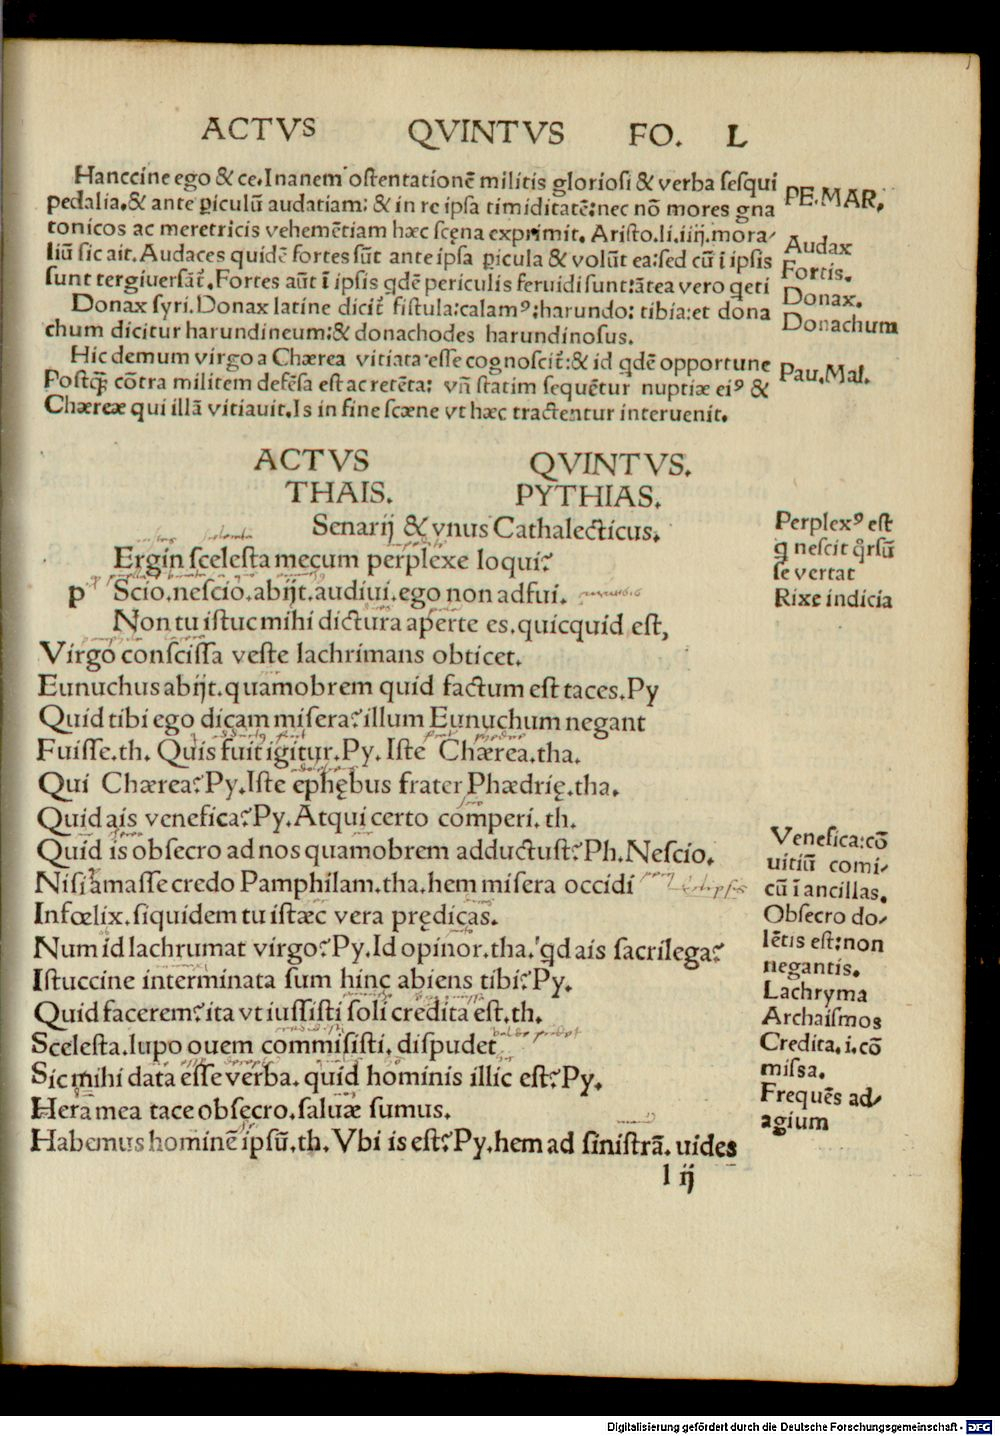 ACTVS QVINTVS FO. L
Hanccine ego & ce. Inanem ostentationē militis gloriosi & verba sesqui
pedalia. & ante ꝑiculū audatiam: & in re ipsa timiditatē: nec nō mores gna
tonicos ac meretricis vehemētiam hæc scęna exprimit. Aristo. li. iiij. mora/
liū sic ait. Audaces quidē fortes sūt ante ipsa ꝑicula & volūt ea: sed cū ī ipsis
sunt tergiuersāt̄. Fortes aūt ī ipsis qdē periculis feruidi sunt: ātea vero qeti
Donax syri. Donax latine dicit̄ fistula: calamꝰ: harundo: tibia: et dona
chum dicitur harundineum: & donachodes harundinosus.
Hic demum virgo a Chærea vitiata esse cognoscit̄: & id qdē opportune
Postq̄ȝ cōtra militem defēsa est ac retēta: vn̄ statim sequētur nuptiæ eiꝰ &
Chæreæ qui illā vitiauit. Is in fine scæne vt hæc tractentur interuenit.
PE. MAR.
Audax
Fortis.
Donax.
Donachum
Pau. Mal.
ACTVS QVINTVS.
THAIS. PYTHIAS.
Senarij & vnus Cathalecticus.
Ergin scelesta mecum perplexe loqui?
p Scio. nescio. abijt. audiui. ego non adfui.
Non tu istuc mihi dictura aperte es. quicquid est,
Virgo conscissa veste lachrimans obticet.
Eunuchus abijt. quamobrem quid factum est taces. Py
Quid tibi ego dicam misera? illum Eunuchum negant
Fuisse. th. Quis fuit igitur. Py. Iste Chærea. tha.
Qui Chærea? Py. Iste ephębus frater Phædrię. tha.
Quid ais venefica? Py. Atqui certo comperi. th.
Quid is obsecro ad nos quamobrem adductust? Ph. Nescio.
Nisi amasse credo Pamphilam. tha. hem misera occidi
Infœlix. siquidem tu istæc vera prędicas.
Num id lachrumat virgo? Py. Id opinor. tha. qd ais sacrilega?
Istuccine interminata sum hinc abiens tibi? Py.
Quid facerem? ita vt iussisti soli credita est. th.
Scelesta. lupo ouem commisisti. dispudet
Sic mihi data esse verba. quid hominis illic est? Py.
Hera mea tace obsecro. saluæ sumus.
Habemus hominē ipsū. th. Vbi is est? Py. hem ad sinistrā. uides
l ij
Perplexꝰ est
q nescit qrsū
se vertat
Rixe indicia
Venefica: cō
uitiū comi/
cū ī ancillas.
Obsecro do/
lētis est: non
negantis.
Lachryma
Archaismos
Credita. i. cō
missa.
Frequēs ad/
agium
Digitalisierung gefördert durch die Deutsche Forschungsgemeinschaft - DFG